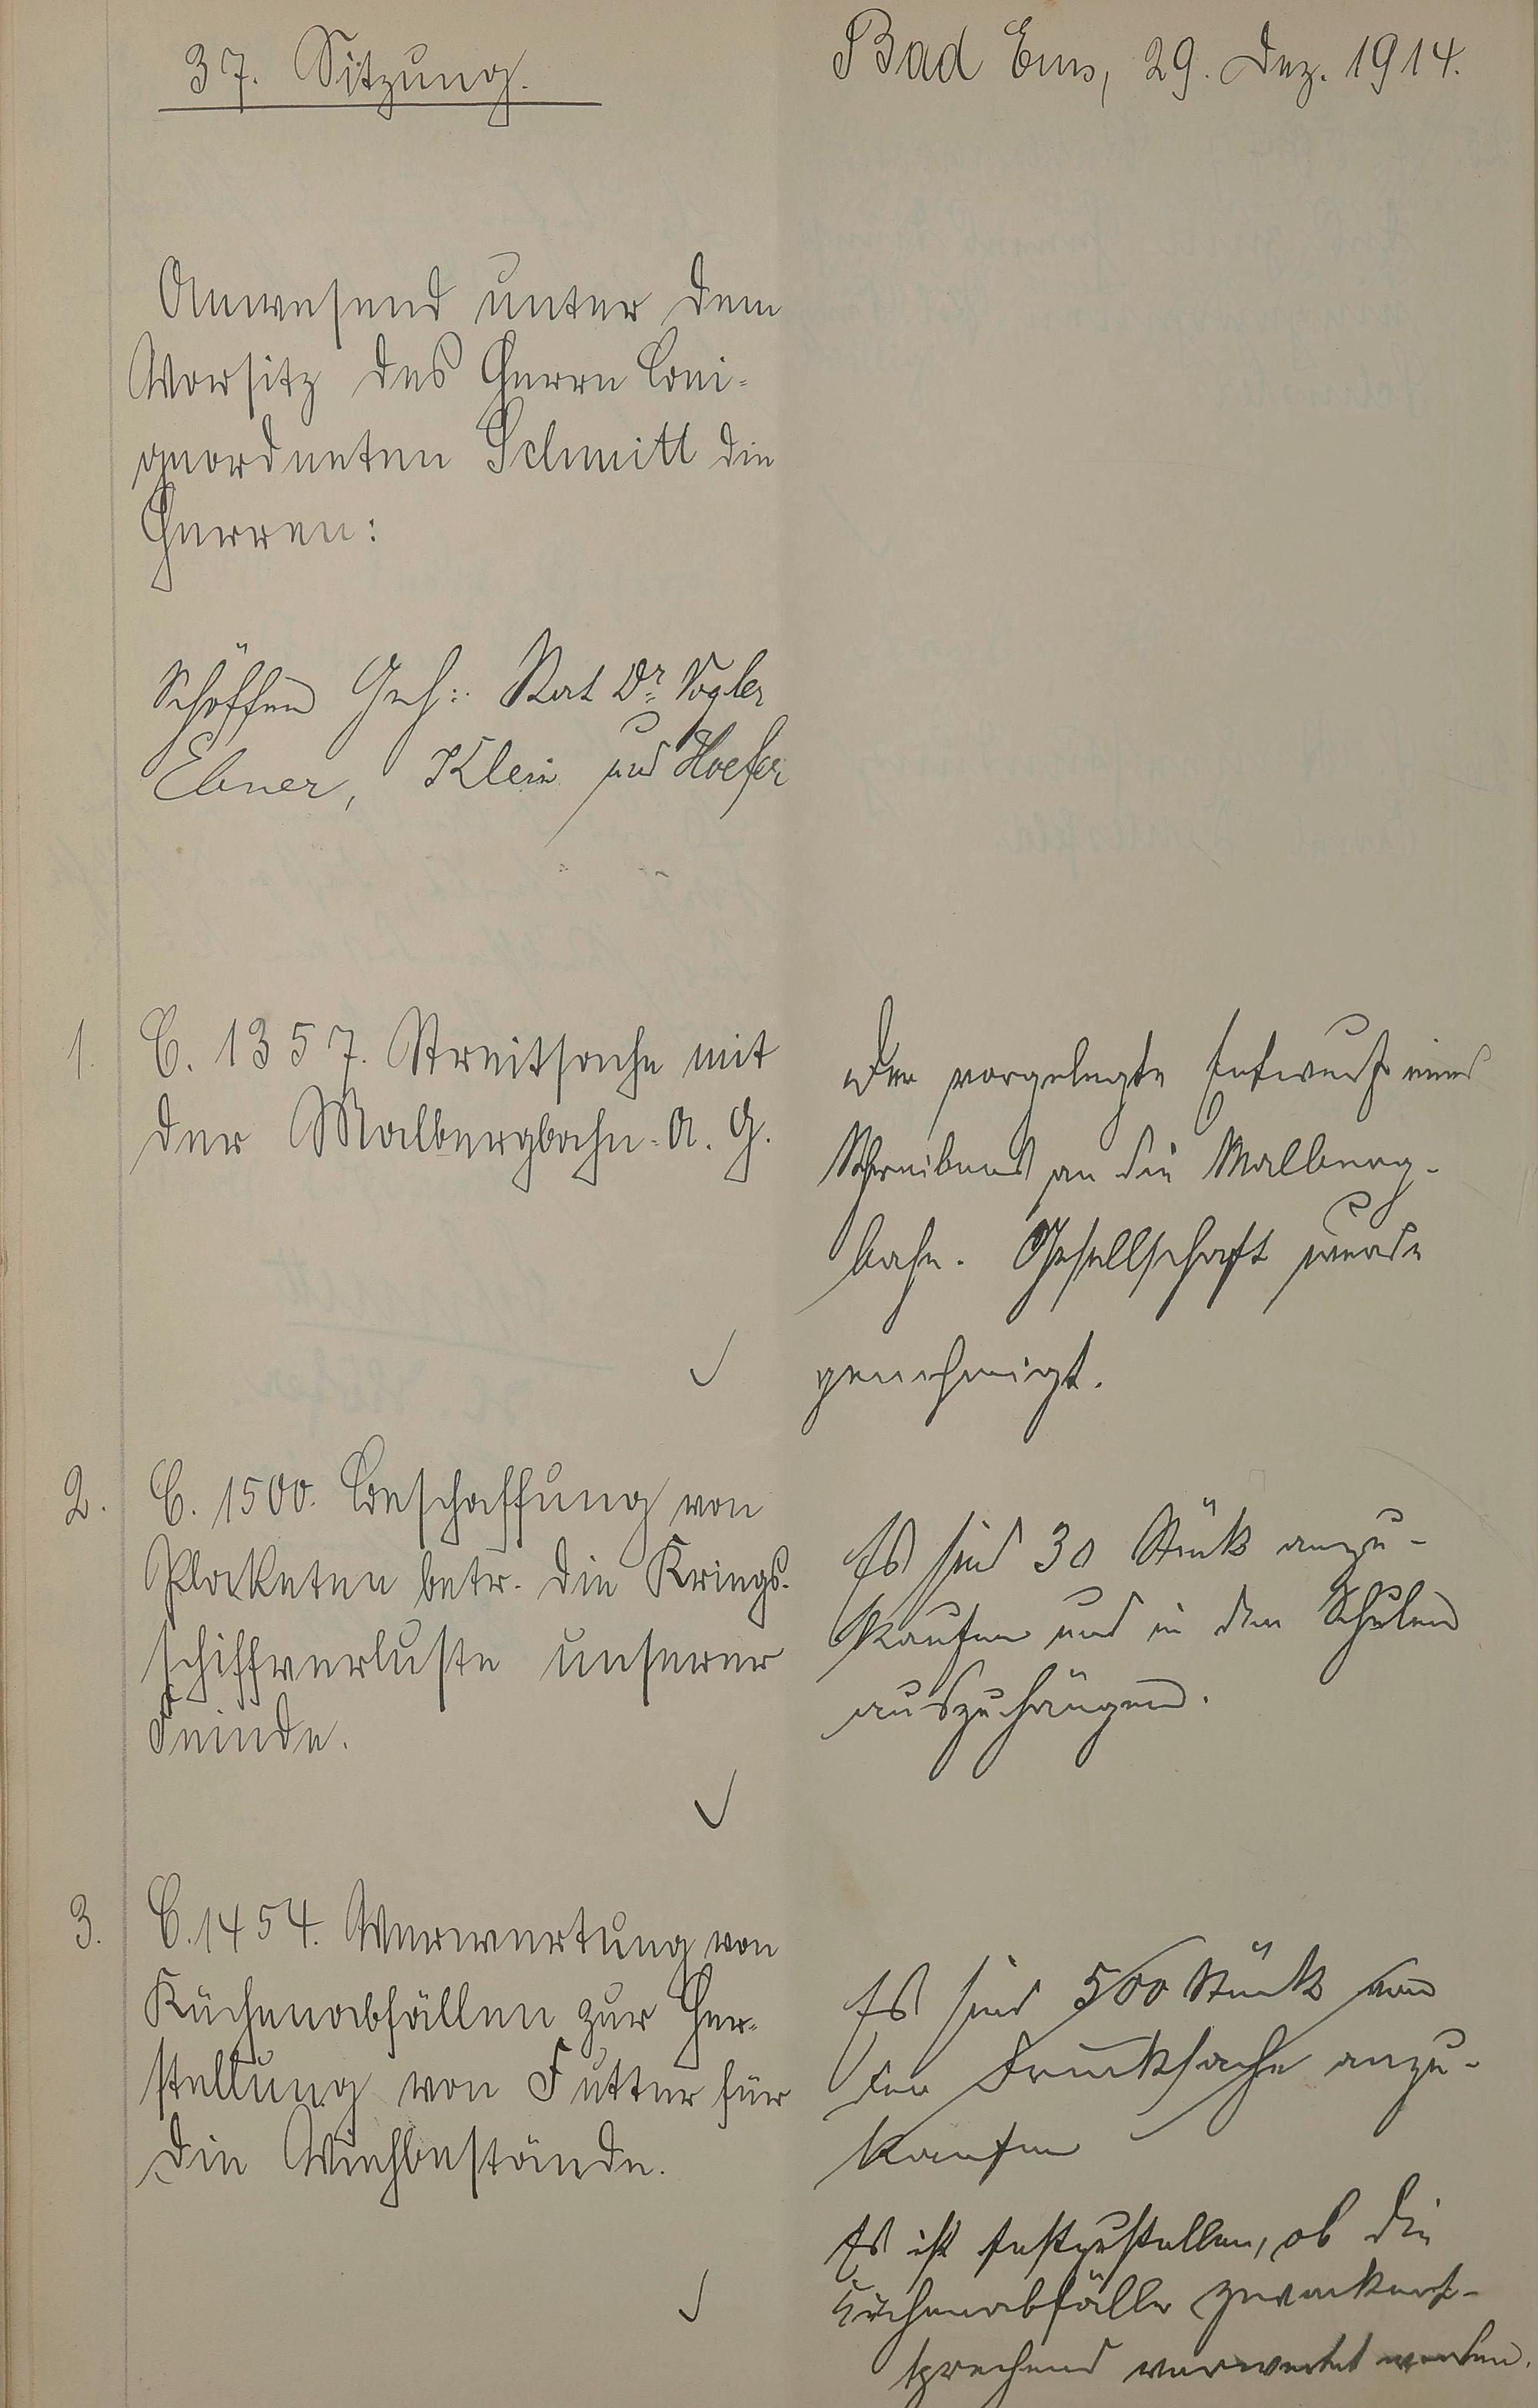 37. Sitzung.
Bad Ems, 29. Dez. 1914.
Anwesend unter dem
Vorsitz des Herrn Bei-
geordneten Schmitt die
Herren:
Schöffen Geh: Rat Dr. Vogler
Ebner, Klein und Hoefer
1. C. 1357. Streitsache mit
der Malbergbahn-A. G.
Der vorgelegte Entwurf eines
Schreibens an die Malberg-
bahn. Gesellschaft wurde
genehmigt.
2. C. 1500. Beschaffung von
Plaketen betr. die Kriegs-
schiffverluste unserer
Feinde.
Es sind 30 Stück anzu-
kaufen und in den Schulen
auszuhängen.
3. C. 1454. Verwertung von
Küchenabfällen zur Her-
stellung von Futter für
die Viehbestände.
Es sind 500 Stück von
der Drucksache anzu-
kaufen
Es ist festzustellen, ob die
Küchenabfälle zweckent-
sprechend verwertet werden.